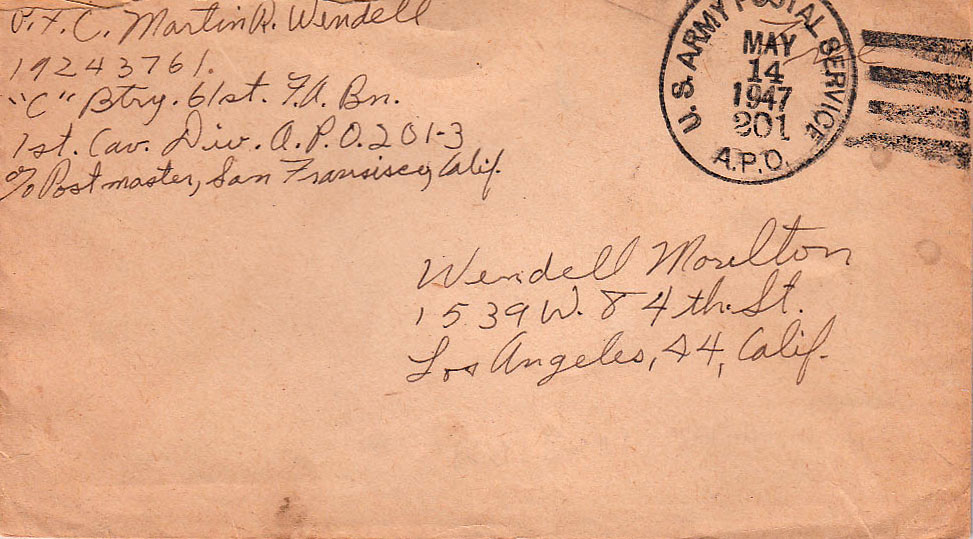 P.F.C. Martin R. Wendell
19243761.
"C" Btry. 61st. F.A. Bn.
1st. Cav. Div. A.P.O. 201-3
c/o Postmaster, San Fransisco, Calif.
Free
U.S. ARMY POSTAL SERVICE
MAY
14
1947
201
A.P.O.
Wendell Moulton
1539 W. 84th. St.
Los Angeles, 44, Calif.